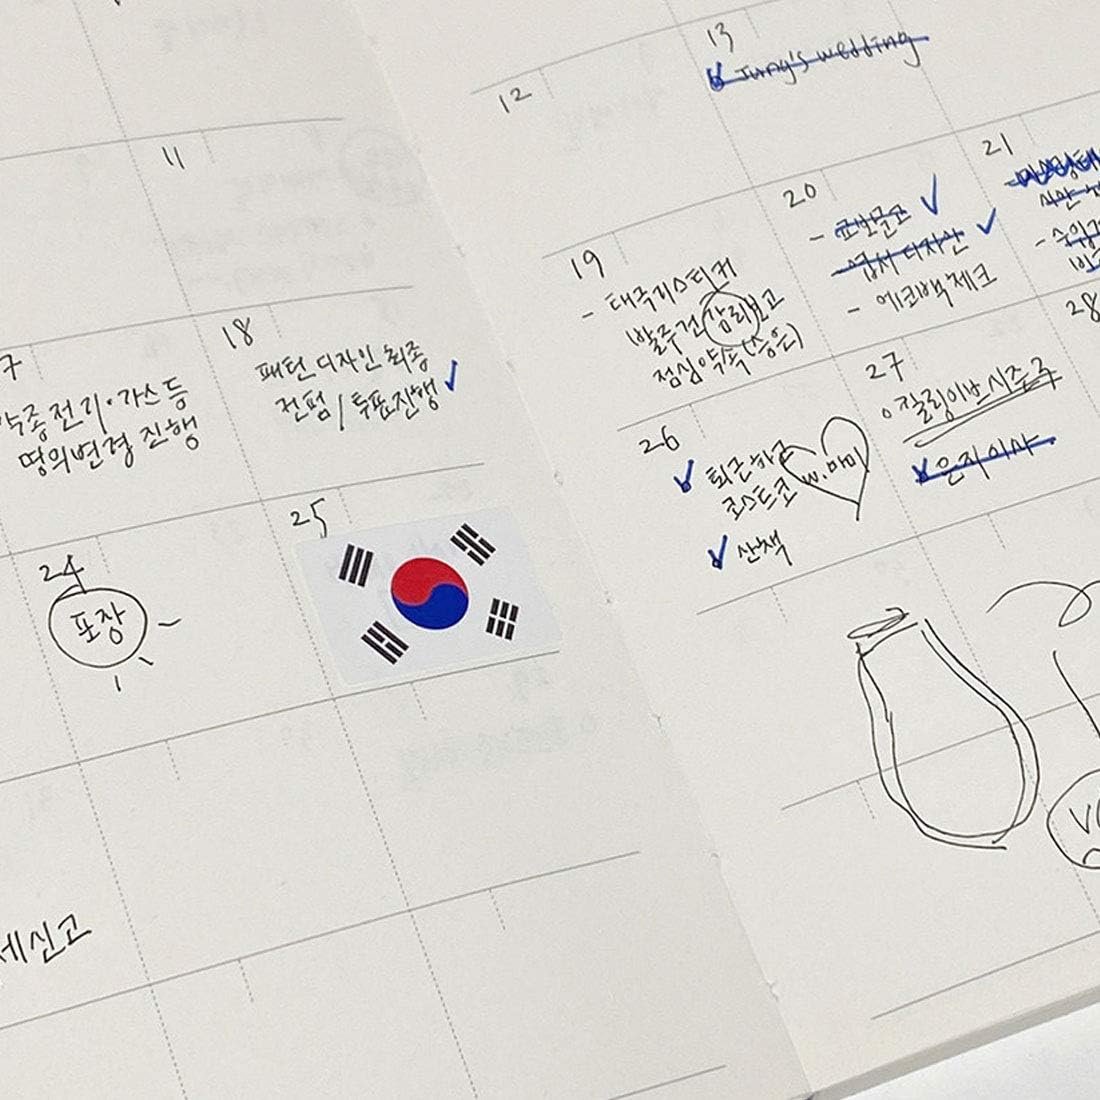 11
7
전기·가스 등
명의변경 진행
18
패턴 디자인 최종
컨펌 / 투표진행
24
포장
25
세신고
12
13
Jung's wedding
19
- 태극기스티커
발주건 감리보고
점심약속(승은)
20
- 교보문고
- 엽서 디자인
- 에코백 체크
21
시안
26
퇴근하고
코스트코 w.마미
산책
27
킬링이브 시즌
은지 이사
28